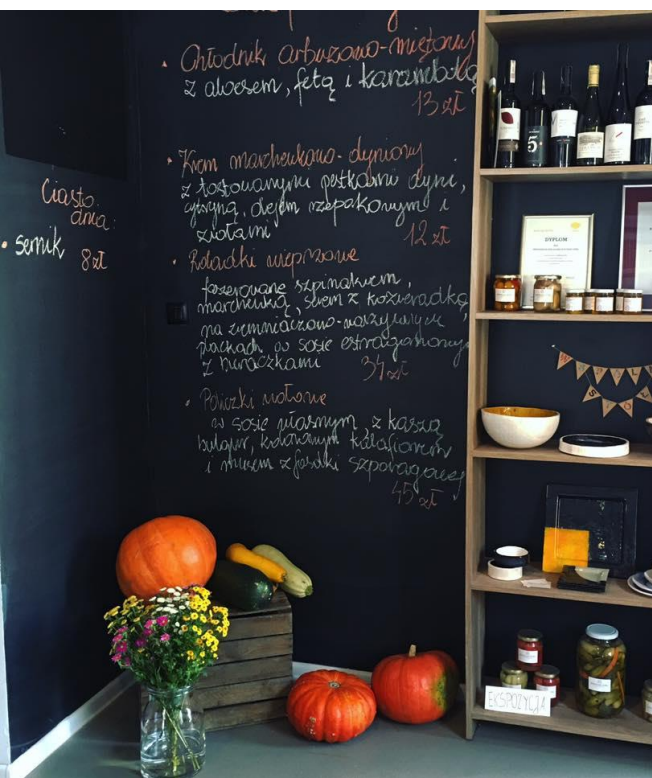 Ciasto
dnia:
• sernik 8 zł
• Chłodnik arbuzowo-miętowy
z aloesem, fetą i karambolą
13 zł
• Krem marchewkowo-dyniowy
z tostowanymi pestkami dyni,
cytryną, olejem rzepakowym i
ziołami 12 zł
• Roladki wieprzowe
faszerowane szpinakiem,
marchewką, serem z kozieradką,
na ziemniaczano-warzywnych
plackach w sosie estragonowym
z buraczkami 34 zł
• Policzki wołowe
w sosie własnym, z kaszą
bulgur, kalafiorem
i musem z fasolki szparagowej
45 zł
5
DYPLOM
EKSPOZYCJA